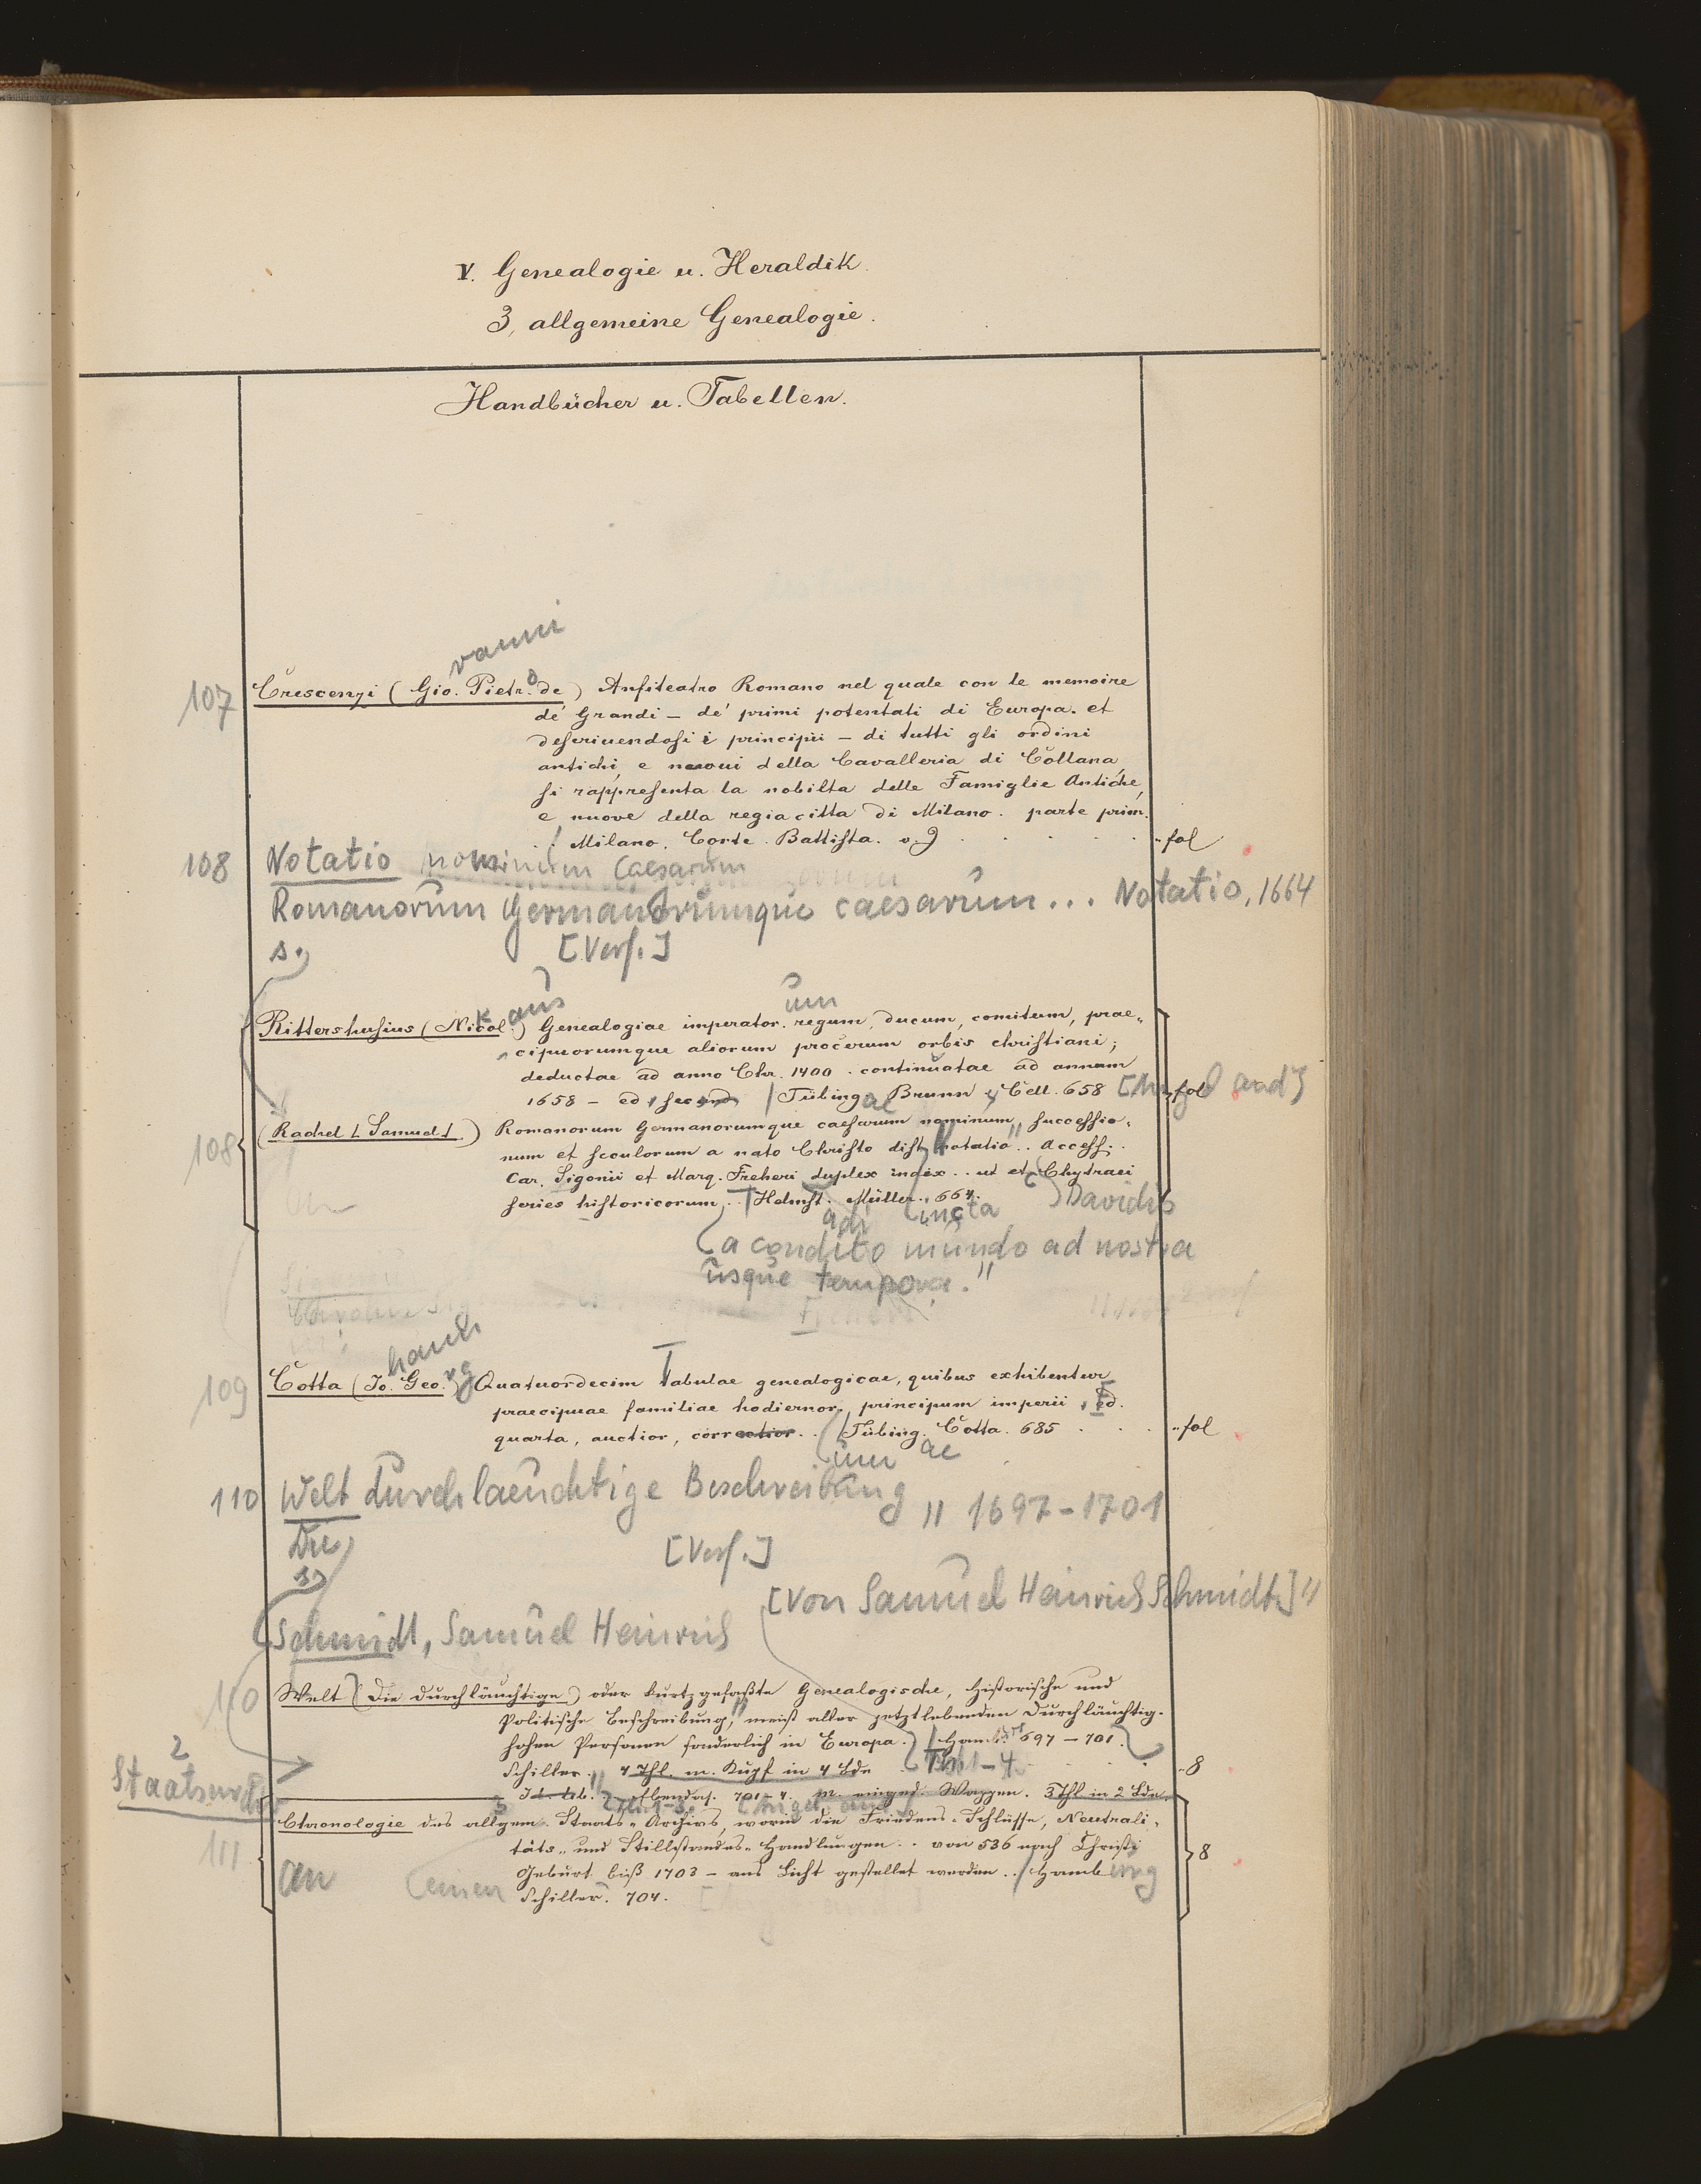 V. Genealogie u. Heraldik.
3, allgemeine Genealogie.
Handbücher u. Tabellen.
vanni
107 Crescenzi (Gio. Pietr.o de) Anfiteatro Romano nel quale con le memoire
de' Grandi – de' primi potentati di Europa. et
descriuendosi i principii – di tutti gli ordini
antichi, e nuoui della Cavalleria di Collana,
si rappresenta la nobilta delle Famiglie Antiche,
e nuove della regia citta di Milano. parte prim.
Milano. Corte. Battista. o. J. fol
108 Notatio nominum Caesarum
Romanorum Germanorumque caesarum... Notatio, 1664
s. [Verf.]
k aus um
Rittershusius (Nicol.) Genealogiae imperator. regum, ducum, comitum, prae-
cipuorumque aliorum procerum orbis christiani;
deductae ad anno Chr. 1400. continuatae ad annum
1658 – ed. secund. Tübingae Brunn & Cell. 658 fol
108 (Rachel Samuel) Romanorum Germanorumque caesarum nominum, successio-
num et seculorum a nato Christo dist. notatio". Access.
Car. Sigonii et Marq. Freheri duplex index.. ut et Chytraei
series historicorum.. Helmst. Müller. 664.
adi incta Davidis
a condito mundo ad nostra
usque tempora."
hann
109 Cotta (Jo. Georg) Quatuordecim Tabulae genealogicae, quibus exhibentur
praecipuae familiae hodiernor. principum imperii, Ed.
quarta, auctior, correctior.. Tübing. Cotta. 685 fol
um ae
110 Welt durchlaeuchtige Beschreibung " 1697-1701
Die [Verf.]
s.
[von Samuel Heinrich Schmidt]"
Schmidt, Samuel Heinrich
110 Welt (Die durchläuchtige) oder kurtzgefaßte Genealogische, Historische und
Politische Beschreibung, meist aller jetztlebenden Durchläuchtig-
hohen Personen sonderlich in Europa. Hamb. 697 – 701.
Schiller. 4 Thl. m. Kupf in 4 Bde Th 1-4. 8
2
Id. lib. Ebendas. 701-4. m. eingedr. Wappen. 3 Thl in 2 Bde.
111 Chronologie des allgem. Staats-Archivs, worin die Friedens-Schlüsse, Neutrali-
täts- und Stillstandes-Handlungen.. von 536 nach Christi
Geburt biß 1703 – ans Licht gestellet werden.. Hamburg 8
an einen Schiller. 704.